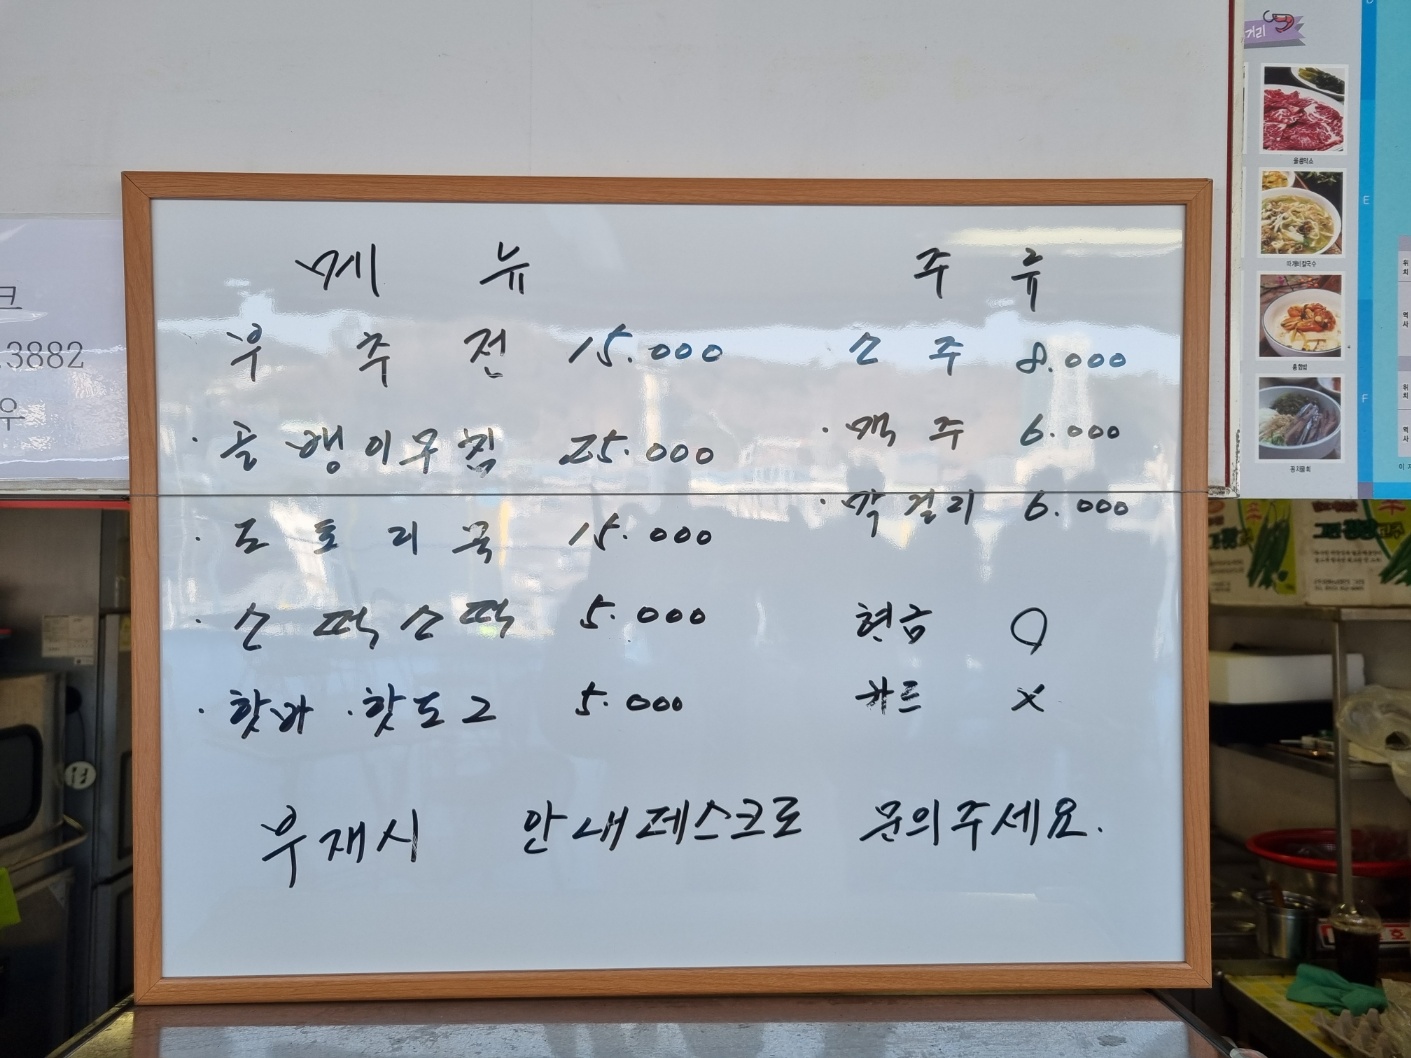 메 뉴
우 주 전 15.000
· 골 뱅 이 무 침 25.000
· 도 토 리 묵 15.000
· 소 떡 소 떡 5.000
· 핫바 · 핫도그 5.000
주 류
· 소 주 8.000
· 맥 주 6.000
· 막걸리 6.000
현금 O
카드 X
부재시 안내데스크로 문의주세요.
크
.3882
우
거리
홍합밥
E
F